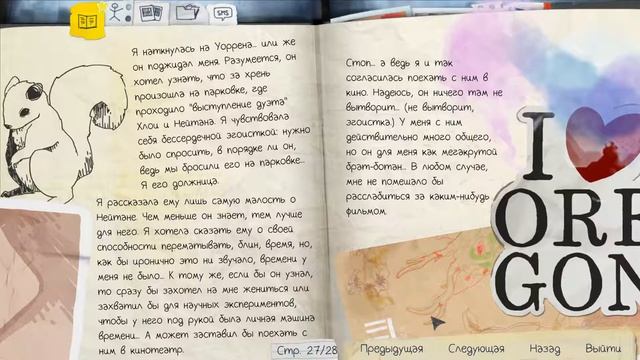 SMS
Я наткнулась на Уоррена... или же
он поджидал меня. Разумеется, он
хотел узнать, что за хрень
произошла на парковке, где
проходило "выступление дуэта"
Хлои и Нейтана. Я чувствовала
себя бессердечной эгоисткой: нужно
было спросить, в порядке ли он,
ведь мы бросили его на парковке...
Я его должница.
Я рассказала ему лишь самую малость о
Нейтане. Чем меньше он знает, тем лучше
для него. Я хотела сказать ему о своей
способности перематывать, блин, время, но,
как бы иронично это ни звучало, времени у
меня не было... К тому же, если бы он узнал,
то сразу бы захотел на мне жениться или
захватил бы для научных экспериментов,
чтобы у него под рукой была личная машина
времени... А может заставил бы поехать с
ним в кинотеатр.
Стр. 27/28
Стоп... а ведь я и так
согласилась поехать с ним в
кино. Надеюсь, он ничего там не
вытворит... (не вытворит,
эгоистка.) У меня с ним
действительно много общего,
но он для меня как мегакрутой
брат-ботан... В любом случае,
мне не помешало бы
расслабиться за каким-нибудь
фильмом.
I
ORE
GON
Предыдущая Следующая Назад Выйти